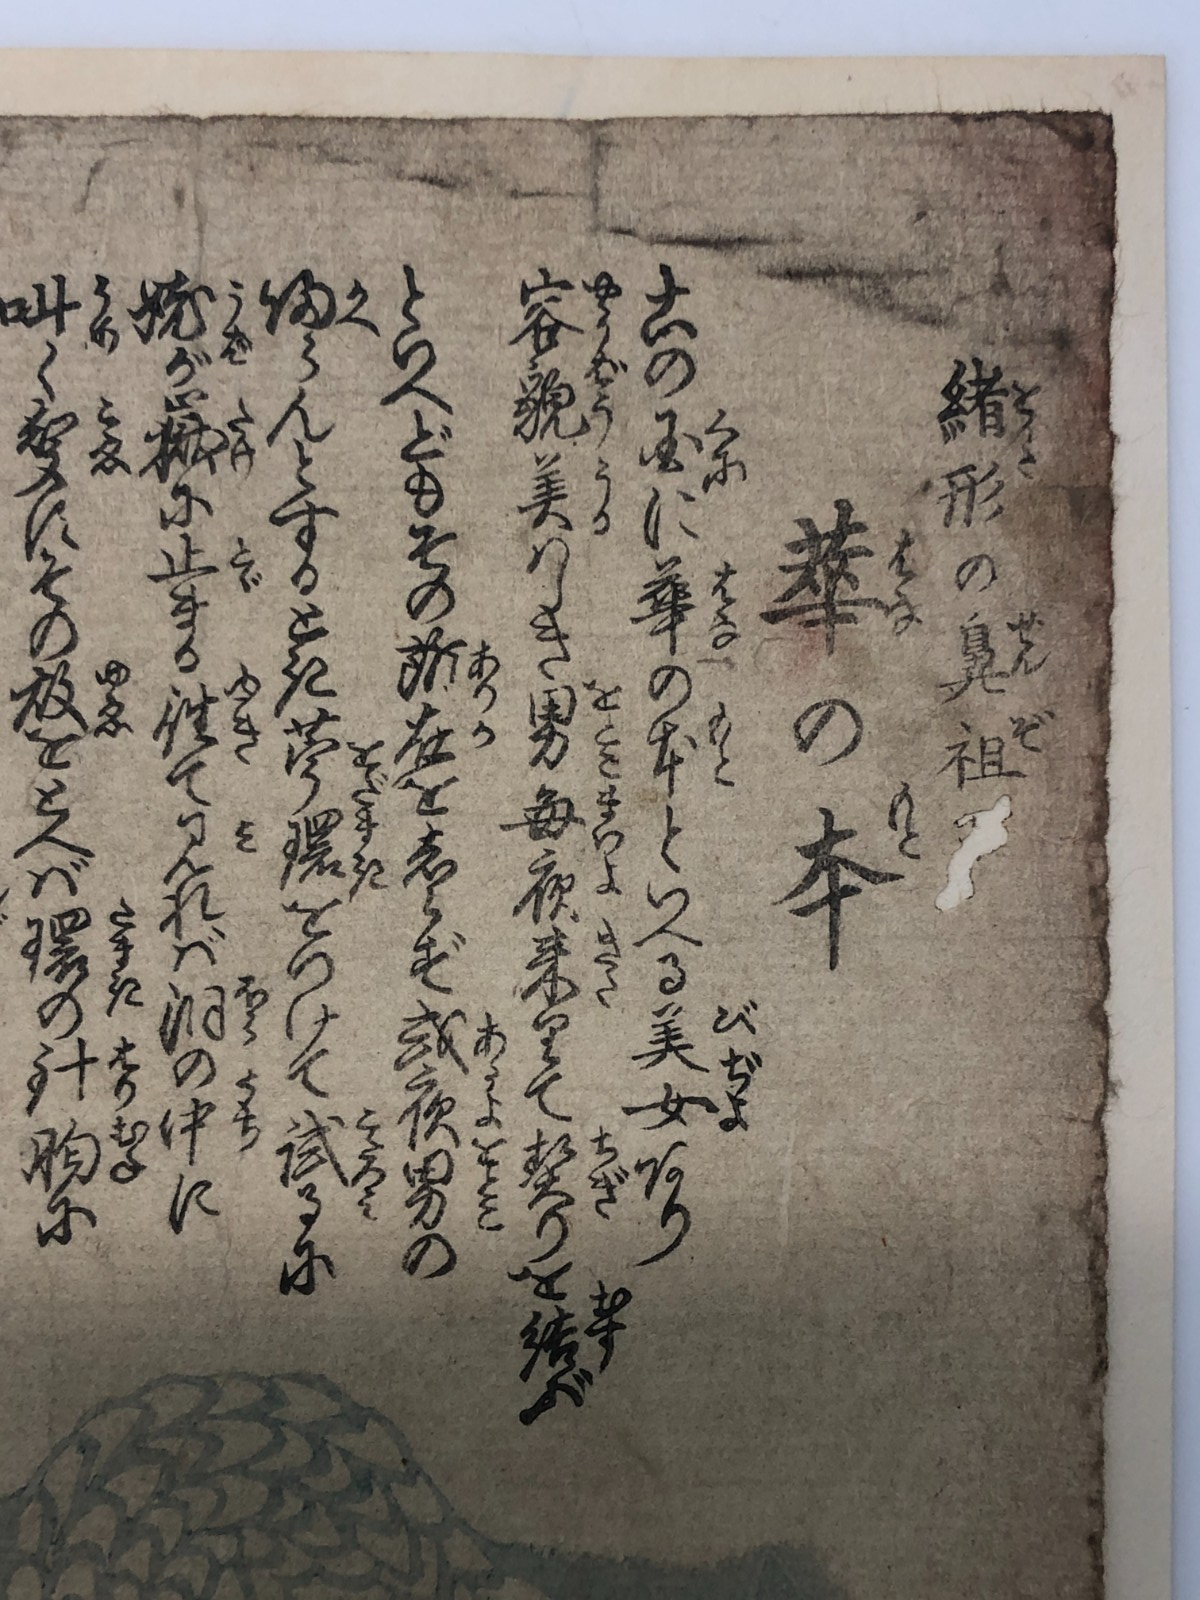 緒形の鼻祖
華の本
古の国に華の本といへる美女あり
容貌美はしき男毎夜来りて契りを結ぶ
といへどもその所在をしらず或夜男の
帰らんとするとき苧環をつけて試るに
姥が嶽に止まる往てみれば洞の中に
叫く声すその故をとへば環の針胸に